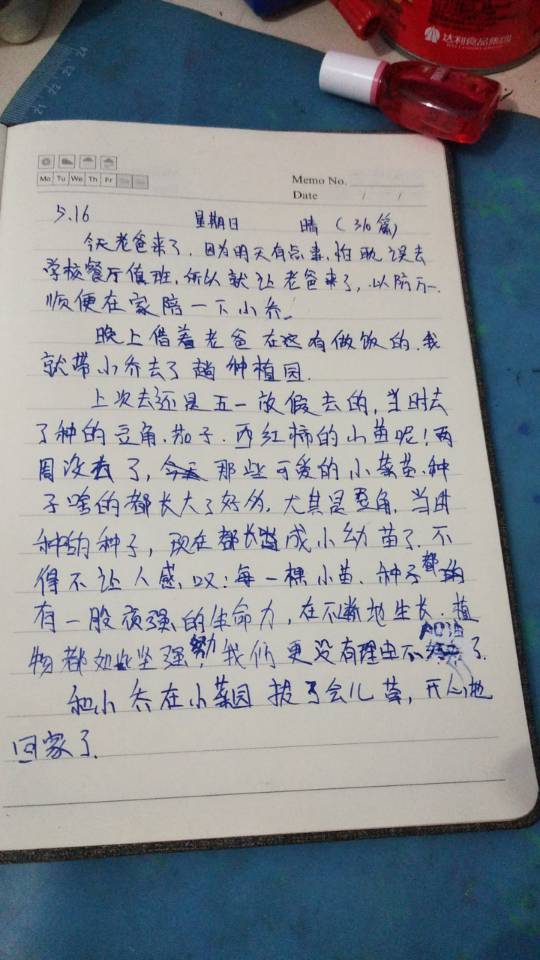 达利食品集团
21 22 23 24
Mo Tu We Th Fr Sa Su
Memo No.
Date / /
5.16 星期日 晴 (310篇)
今天老爸来了，因为明天有点事，怕耽误去
学校餐厅值班，所以就让老爸来了，以防万一.
顺便在家陪一下小乔。
晚上借着老爸在这有做饭的，我
就带小乔去了趟种植园.
上次去还是五一放假去的，当时去
了种的豆角、茄子、西红柿的小苗呢！两
周没去了，那些可爱的小菜苗、种
子啥的都长大了好多，尤其是豆角，当时
种的种子，现在都长成小幼苗了.不
得不让人感叹：每一棵小苗、种子都
有一股顽强的生命力，在不断地生长.植
物都如此坚强努力我们更没有理由不加油了.
和小乔在小菜园拔了会儿草，开心地
回家了.